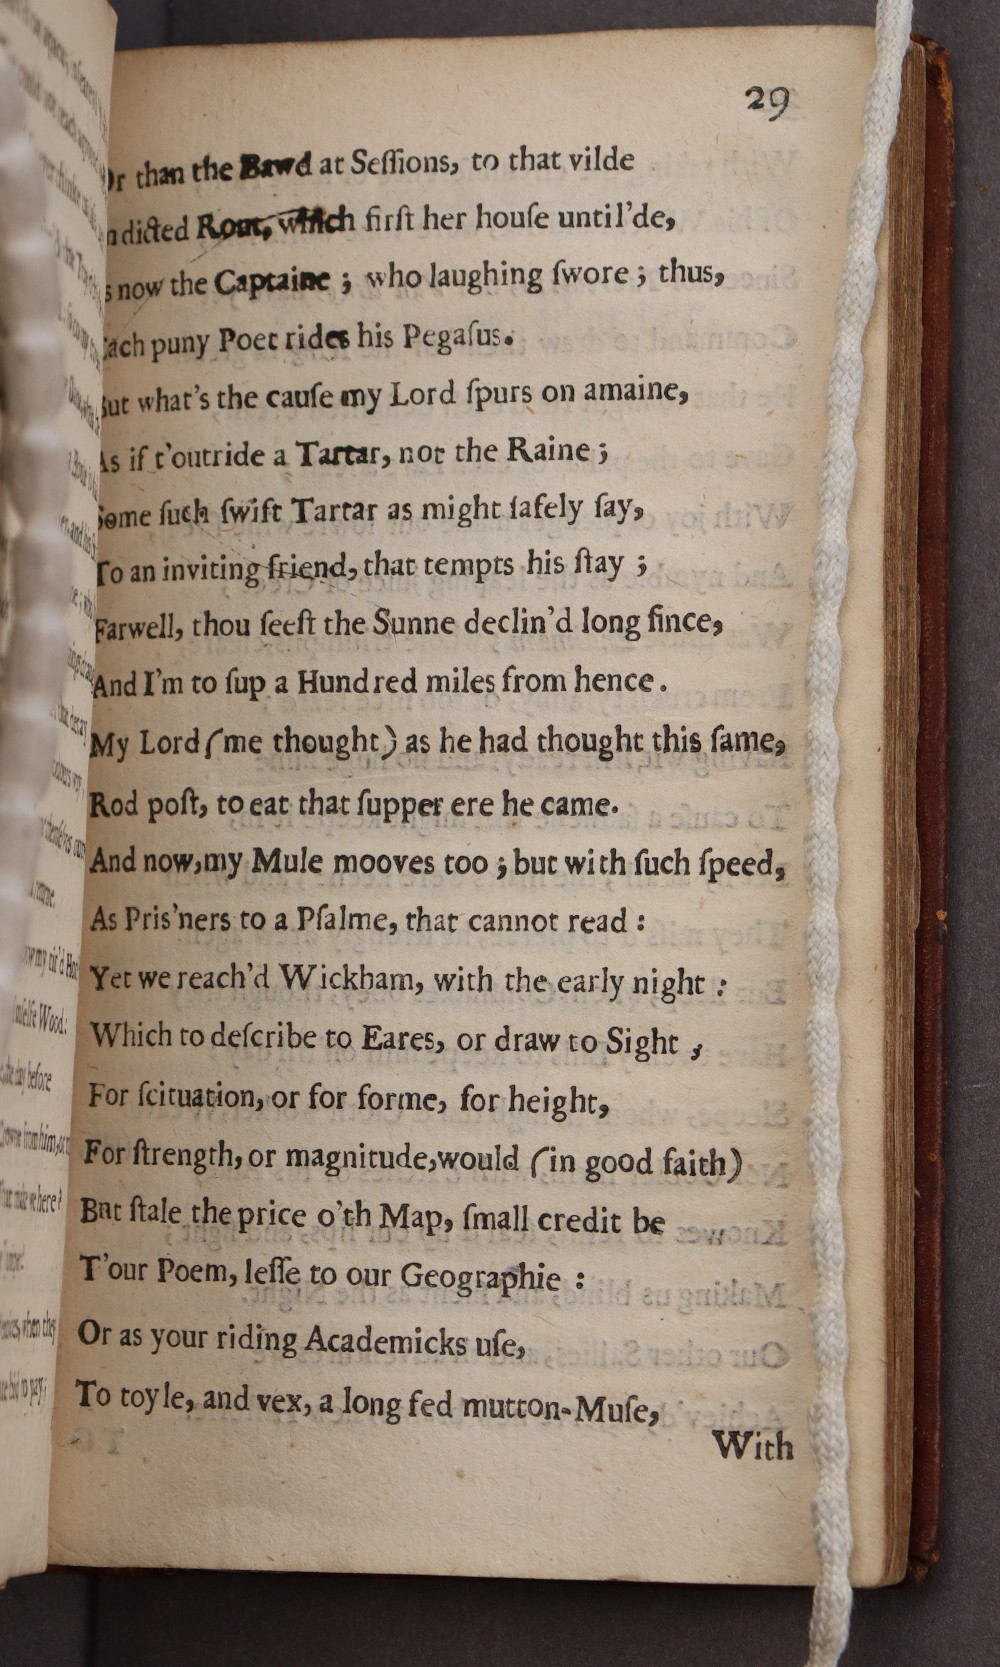 29
Or than the Bawd at Seſſions, to that vilde
ndicted Rout, which firſt her houſe until’de,
s now the Captaine ; who laughing ſwore ; thus,
Each puny Poet rides his Pegaſus.
But what’s the cauſe my Lord ſpurs on amaine,
As if t’outride a Tartar, not the Raine ;
Some ſuch ſwift Tartar as might ſafely ſay,
To an inviting friend, that tempts his ſtay ;
Farwell, thou ſeeſt the Sunne declin’d long ſince,
And I’m to ſup a Hundred miles from hence.
My Lord (me thought) as he had thought this ſame,
Rod poſt, to eat that ſupper ere he came.
And now, my Mule mooves too ; but with ſuch ſpeed,
As Pris’ners to a Pſalme, that cannot read :
Yet we reach’d Wickham, with the early night :
Which to deſcribe to Eares, or draw to Sight ,
For ſcituation, or for forme, for height,
For ſtrength, or magnitude, would (in good faith)
Bnt ſtale the price o’th Map, ſmall credit be
T’our Poem, leſſe to our Geographie :
Or as your riding Academicks uſe,
To toyle, and vex, a long fed mutton-Muſe,
With